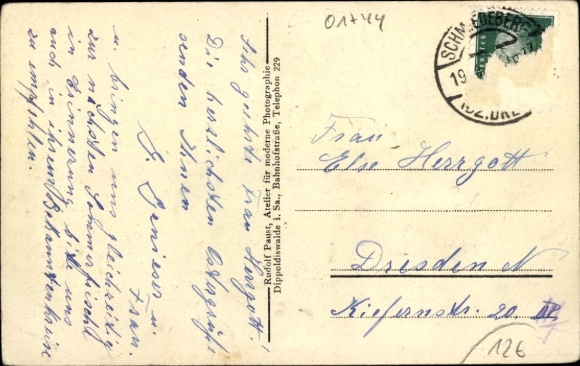 01744
SCHMIEDEBERG
19
BZ. DRE
Sehr geehrte Frau Herrgott!
Die herzlichsten Ostergrüße
senden Ihnen
u. Frau.
u. bringen uns gleichzeitig
zur nächsten Sommerfrische
in Erinnerung, bitte uns
auch in ihrem Bekanntenkreise
zu empfehlen.
Rudolf Paust, Atelier für moderne Photographie
Dippoldiswalde i. Sa., Bahnhofstraße, Telephon 229
Frau
Else Herrgott
Dresden N
Kiefernstr. 20
126